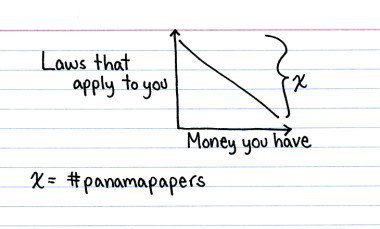 Laws that
apply to you
x
Money you have
x = #panamapapers